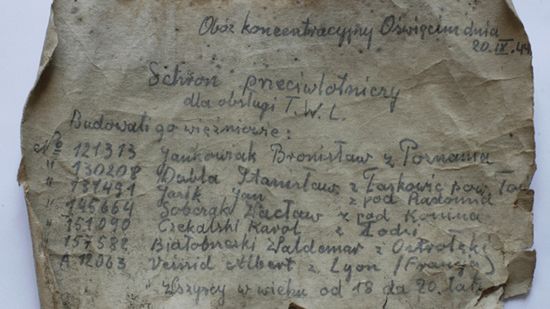 Obóz koncentracyjny Oświęcim dnia
20.IX.44
Schron przeciwlotniczy
dla obsługi T.W.L.
Budowali go więźniowie:
No 121313 Jankowiak Bronisław z Poznania
" 130208 Dubla Stanisław z Łaskowic pow.
" 131491 Jasik Jan z pod Radomia
" 145664 Sobczak Wacław z pod Konina
" 151090 Czekalski Karol z Łodzi
" 157582 Białobrzeski Waldemar z Ostrołęki
A 12063 Veissid Albert z Lyon (Francja)
Wszyscy w wieku od 18 do 20. lat